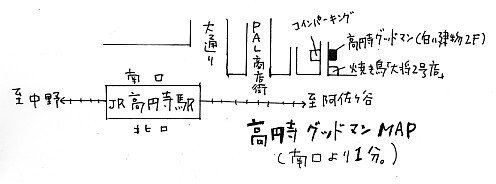 大通り
PAL商店街
コインパーキング
高円寺グッドマン(白い建物2F)
焼き鳥「大将2号店」
南口
至中野
JR高円寺駅
至阿佐ヶ谷
北口
高円寺グッドマンMAP
(南口より1分。)